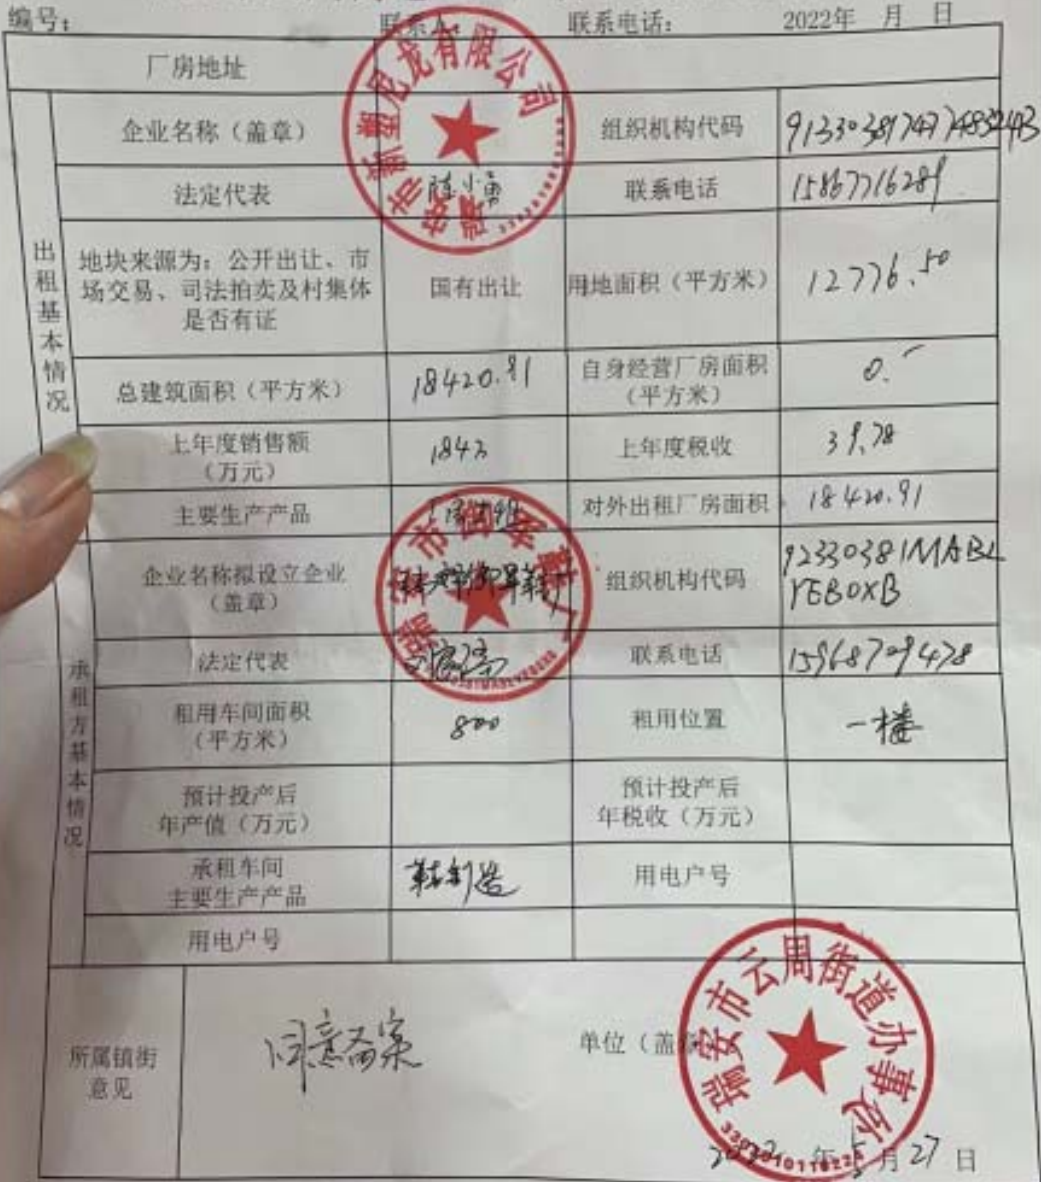 编号: 联系人: 联系电话: 2022年 月 日
厂房地址
出租基本情况
企业名称（盖章） 瑞安市新塑尼龙有限公司 组织机构代码
法定代表 陈小勇 联系电话 15867716289
地块来源为: 公开出让、市
场交易、司法拍卖及村集体
是否有证
国有出让 用地面积（平方米） 12776.50
总建筑面积（平方米） 18420.91 自身经营厂房面积
（平方米）
0.
上年度销售额
（万元）
1843 上年度税收 39.78
主要生产产品 对外出租厂房面积 18420.91
承租方基本情况
企业名称拟设立企业
（盖章）
组织机构代码 92330381MABL
YEB0XB
法定代表 联系电话 15968709478
租用车间面积
（平方米）
800 租用位置 一楼
预计投产后
年产值（万元）
预计投产后
年税收（万元）
承租车间
主要生产产品
鞋制造 用电户号
用电户号
所属镇街
意见
同意备案
单位（盖
瑞安市云周街道办事处
2022年5月27日